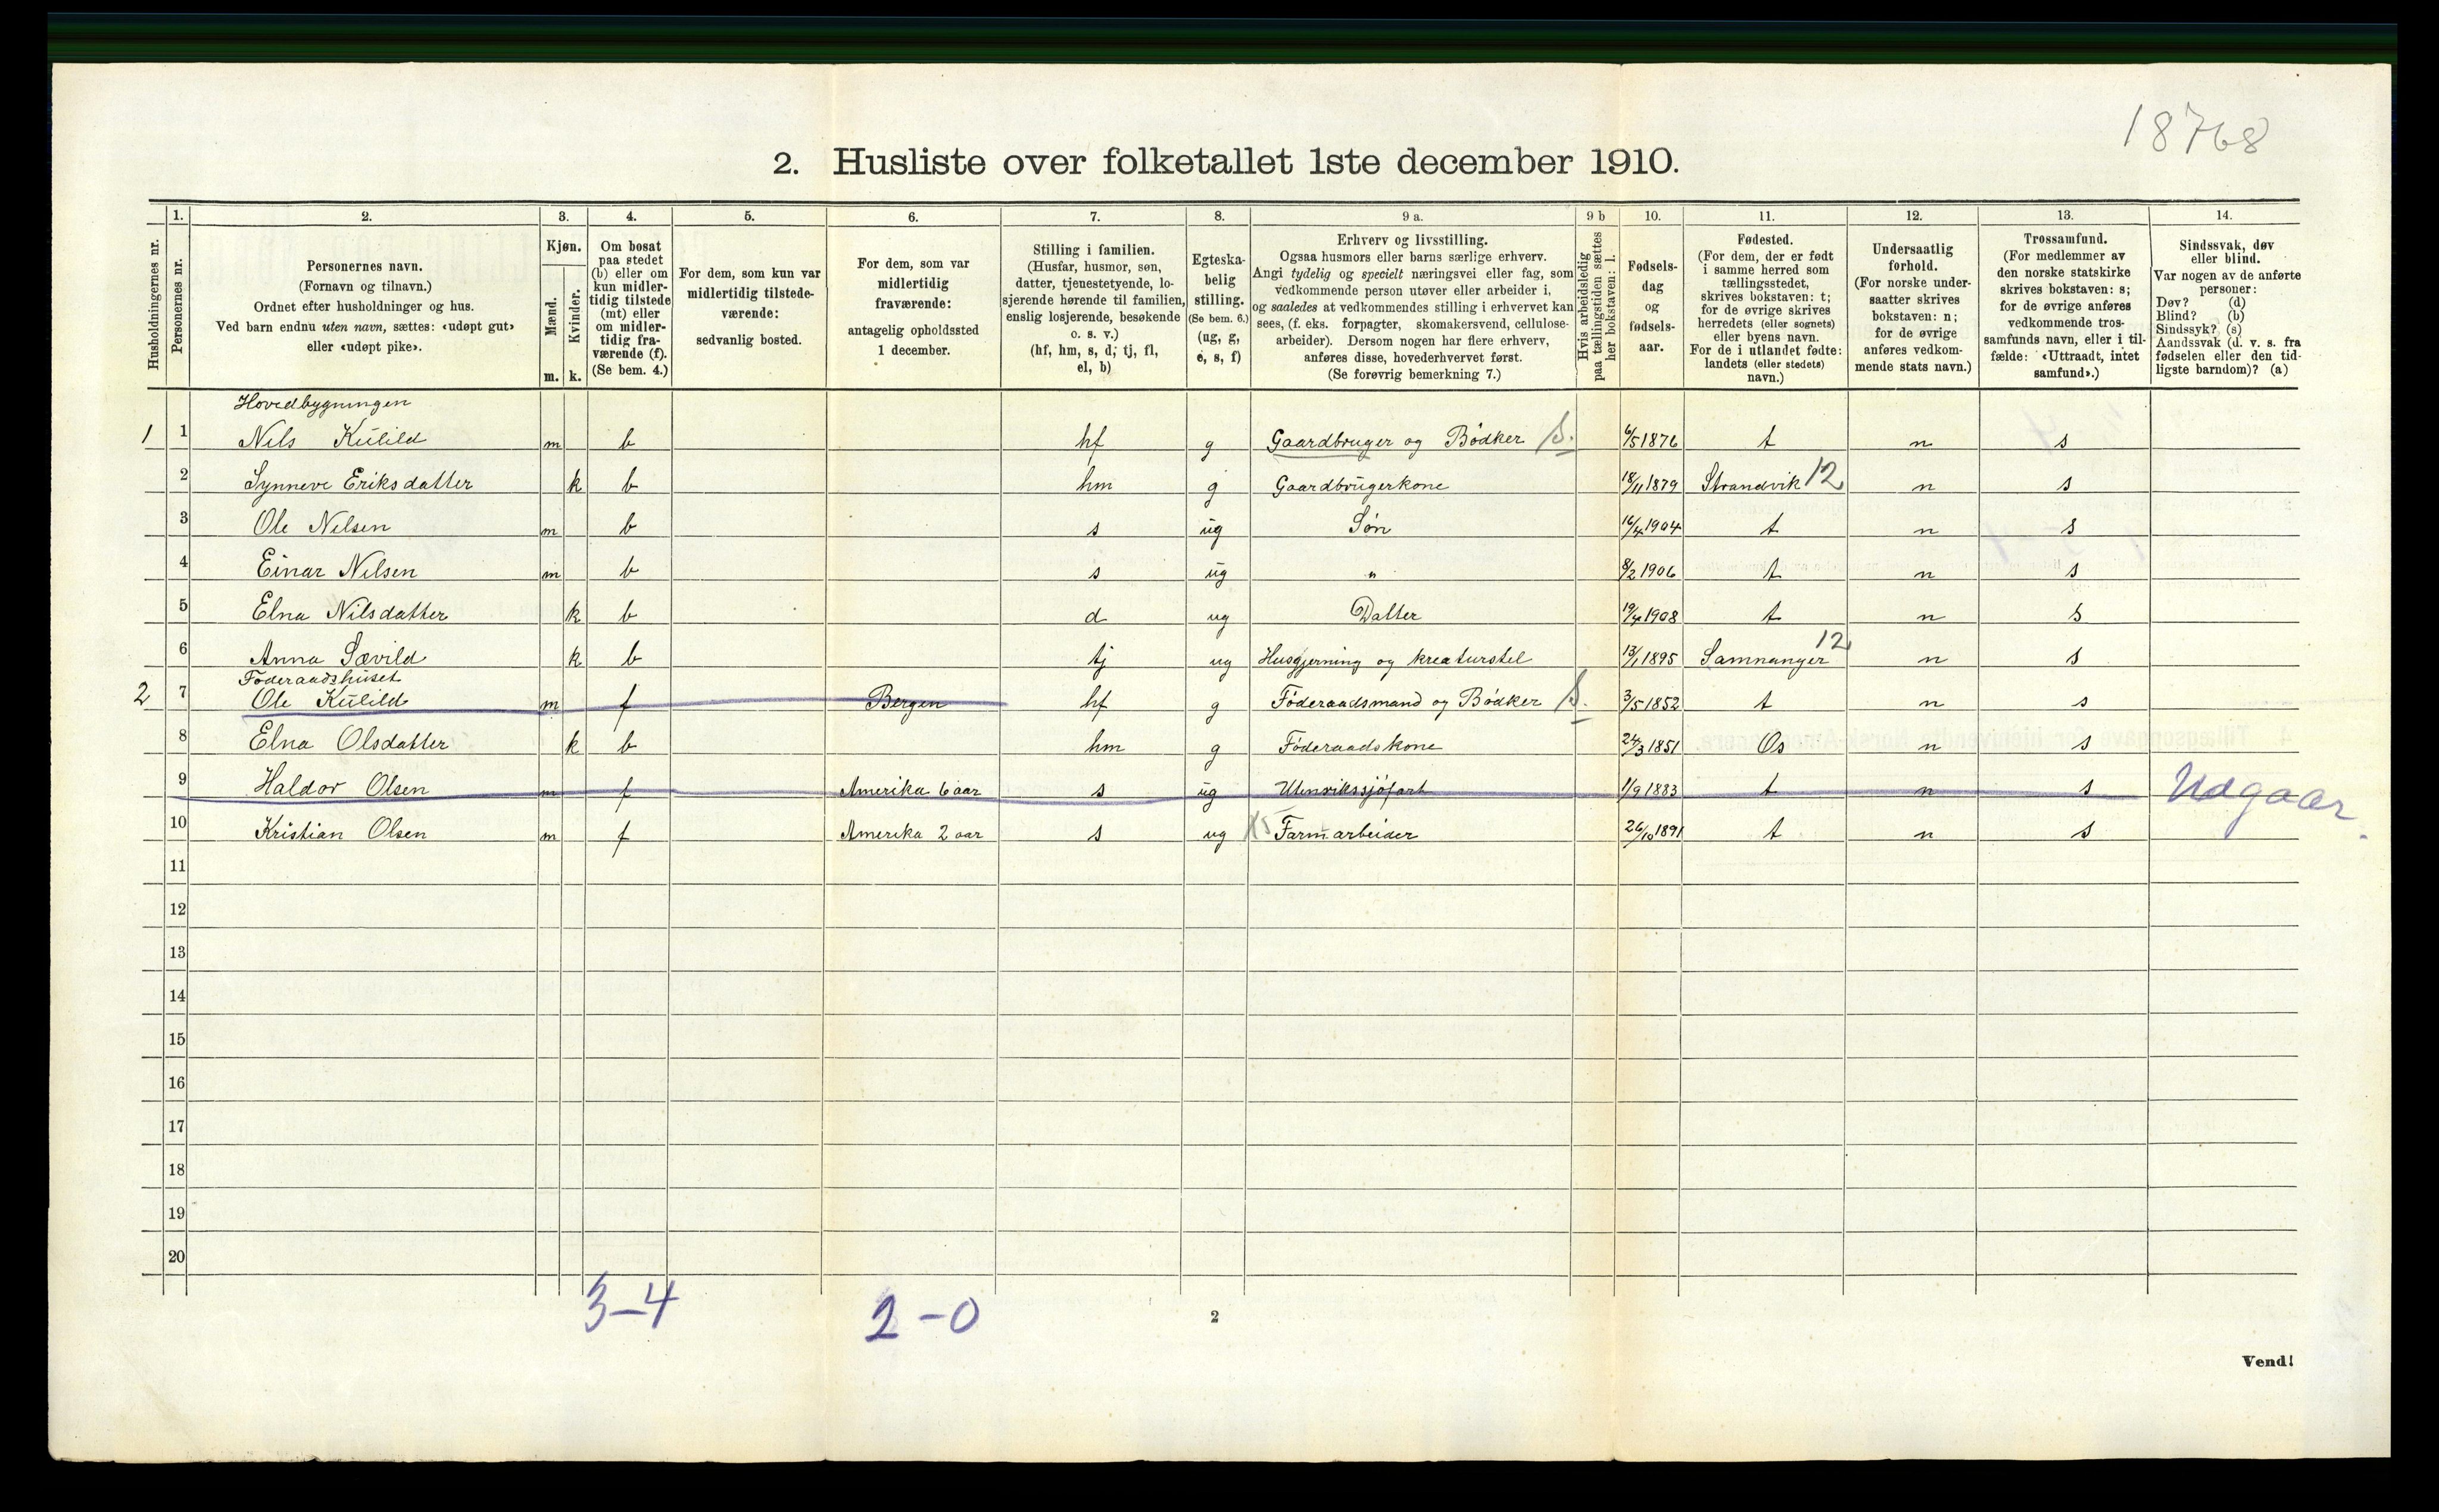 18768
2. Husliste over folketallet 1ste december 1910.
Husholdningernes nr.
1.
Personernes nr.
2.
Personernes navn.
(Fornavn og tilnavn.)
Ordnet efter husholdninger og hus.
Ved barn endnu uten navn, sættes: «udøpt gut»
eller «udøpt pike».
3.
Kjøn.
Mænd.
Kvinder.
m. k.
4.
Om bosat
paa stedet
(b) eller om
kun midler-
tidig tilstede
(mt) eller
om midler-
tidig fra-
værende (f).
(Se bem. 4.)
5.
For dem, som kun var
midlertidig tilstede-
værende:
sedvanlig bosted.
6.
For dem, som var
midlertidig
fraværende:
antagelig opholdssted
1 december.
7.
Stilling i familien.
(Husfar, husmor, søn,
datter, tjenestetyende, lo-
sjerende hørende til familien,
enslig losjerende, besøkende
o. s. v.)
(hf, hm, s, d; tj, fl,
el, b)
8.
Egteska-
belig
stilling.
(Se bem. 6.)
(ug, g,
e, s, f)
9 a.
Erhverv og livsstilling.
Ogsaa husmors eller barns særlige erhverv.
Angi tydelig og specielt næringsvei eller fag, som
vedkommende person utøver eller arbeider i,
og saaledes at vedkommendes stilling i erhvervet kan
sees, (f. eks. forpagter, skomakersvend, cellulose-
arbeider). Dersom nogen har flere erhverv,
anføres disse, hovederhvervet først.
(Se forøvrig bemerkning 7.)
9 b
Hvis arbeidsledig
paa tællingstiden sættes
her bokstaven: l.
10.
Fødsels-
dag
og
fødsels-
aar.
11.
Fødested.
(For dem, der er født
i samme herred som
tællingsstedet,
skrives bokstaven: t;
for de øvrige skrives
herredets (eller sognets)
eller byens navn.
For de i utlandet fødte:
landets (eller stedets)
navn.)
12.
Undersaatlig
forhold.
(For norske under-
saatter skrives
bokstaven: n;
for de øvrige
anføres vedkom-
mende stats navn.)
13.
Trossamfund.
(For medlemmer av
den norske statskirke
skrives bokstaven: s;
for de øvrige anføres
vedkommende tros-
samfunds navn, eller i til-
fælde: «Uttraadt, intet
samfund».)
14.
Sindssvak, døv
eller blind.
Var nogen av de anførte
personer:
Døv? (d)
Blind? (b)
Sindssyk? (s)
Aandssvak (d. v. s. fra
fødselen eller den tid-
ligste barndom)? (a)
Hovedbygningen
1 1 Nils Külild m b hf g Gaardbruger og Bödker S. 6/5 1876 t n s
2 Synneve Eriksdatter k b hm g Gaardbrügerkone 18/11 1879 Strandvik 12 n s
3 Ole Nilsen m b s üg Sön 16/4 1904 t n s
4 Einar Nilsen m b s üg " 8/2 1906 t n s
5 Elna Nilsdatter k b d ug Datter 19/4 1908 t n s
6 Anna Sævild k b tj ug Husgjerning og kreaturstel 13/1 1895 Samnanger 12 n s
Föderaadshüset
2 7 Ole Külild m f Bergen hf g Föderaadsmand og Bödker S. 3/5 1852 t n s
8 Elna Olsdatter k b hm g Föderaadskone 24/3 1851 Os n s
9 Haldor Olsen m f Amerika 6 aar s üg Utenrikssjöfart 1/9 1883 t n s Udgaar.
10 Kristian Olsen m f Amerika 2 aar s ug Farmarbeider 26/10 1891 t n s
11
12
13
14
15
16
17
18
19
20
3-4 2-0
2
Vend!